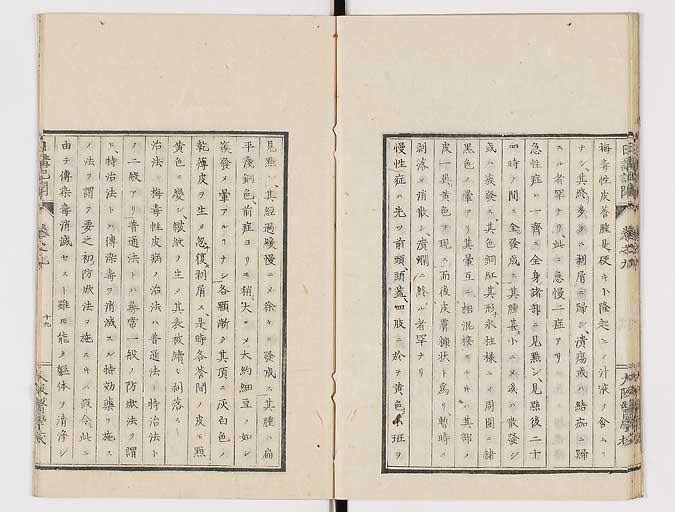 梅毒性皮答腫ハ是硬キト隆起ニシテ汁液ヲ含ムコ
ナシ其終多クハ剥屑ニ歸シ潰瘍或ハ結痂ニ歸
スル者罕ナリ此ニ急慢二症アリ
急性症ハ一齊ニ全身諸部ニ見點シ見點後二十
四時ノ間ニ全發成ス其腫甚小ニメ或ハ散發シ
或ハ簇發ス其色銅紅其形水柱様ニメ周圍ニ諸
黑色ノ暈アリ其暈互ニ相混接スルキハ其部ノ
皮一異黄色ヲ現ス而後皮膚糠状ト爲リ暫時ニ
剥落メ消散シ潰爛ニ終ル者罕ナリ
慢性症ハ先ツ前頭頭蓋四肢ニ於テ黄色ノ班ヲ
見點シ其經過緩慢ニメ徐々ニ發成ス其腫ハ扁
平茂銅色前症ヨリモ稍大ニメ大約細豆ノ如シ
簇發メ暈アルコナシ各顆漸ク其頂ニ灰白色ノ
乾薄皮ヲ生メ忽復剥屑ス是時各答間ノ皮モ㸃
黄色ニ變シ皺紋ヲ生メ其表被續々剥落ス
治法 梅毒性皮病ノ治法ハ普通法ト特治法ト
ノ二般アリ普通法トハ尋常一般ノ防焮法ヲ謂
ヒ特治法トハ傳染毒ヲ消滅スル特効藥ヲ施ス
ノ法ヲ謂フ要之初防焮法ヲ施スキハ假令此ニ
由テ傳染毒消滅セスト雖𪜈能ク軀体ヲ清淨シ
日講記聞
卷之九
十九
大阪醫學校